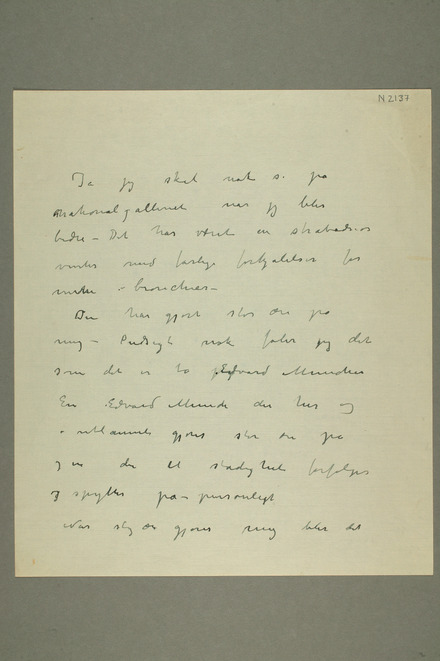 N 2137
Ja jeg skal nok se på
Nationalgalleriet når jeg blir
bedre – Det har været en strabadsiøs
vinter med farlige forkjølelser for
mine bronchier –
Du har gjort stor ære på
mig – Pudsigt nok føler jeg det
som det er to Edvard Muncher
En Edvard Munch der her og
i utlannet gjøres stor ære på
og en der til stadighet forfølges
og spyttes på – personligt
Når slig ære gjøres mig blir det